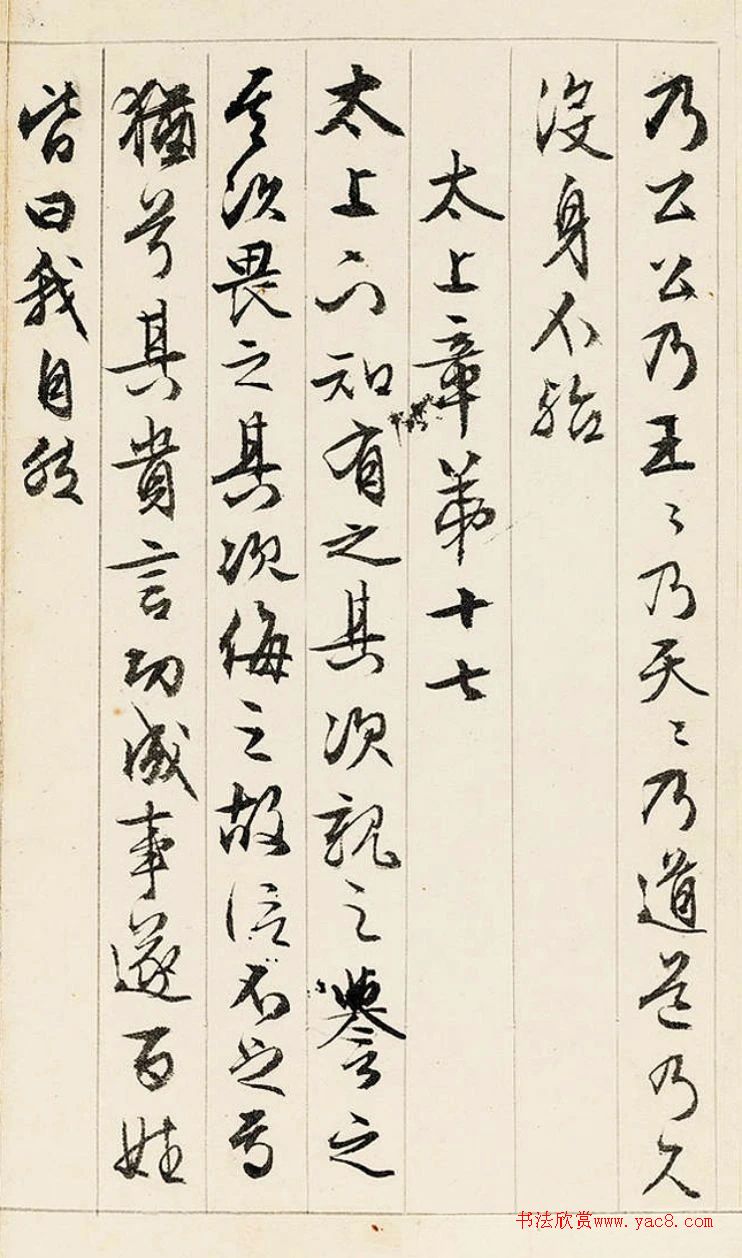 乃公公乃王々乃天々乃道道乃久
沒身不殆
太上章第十七
太上下知有之其次親之譽之
其次畏之其次侮之故信不足焉
猶兮其貴言功成事遂百姓
皆曰我自然
书法欣赏www.yac8.com